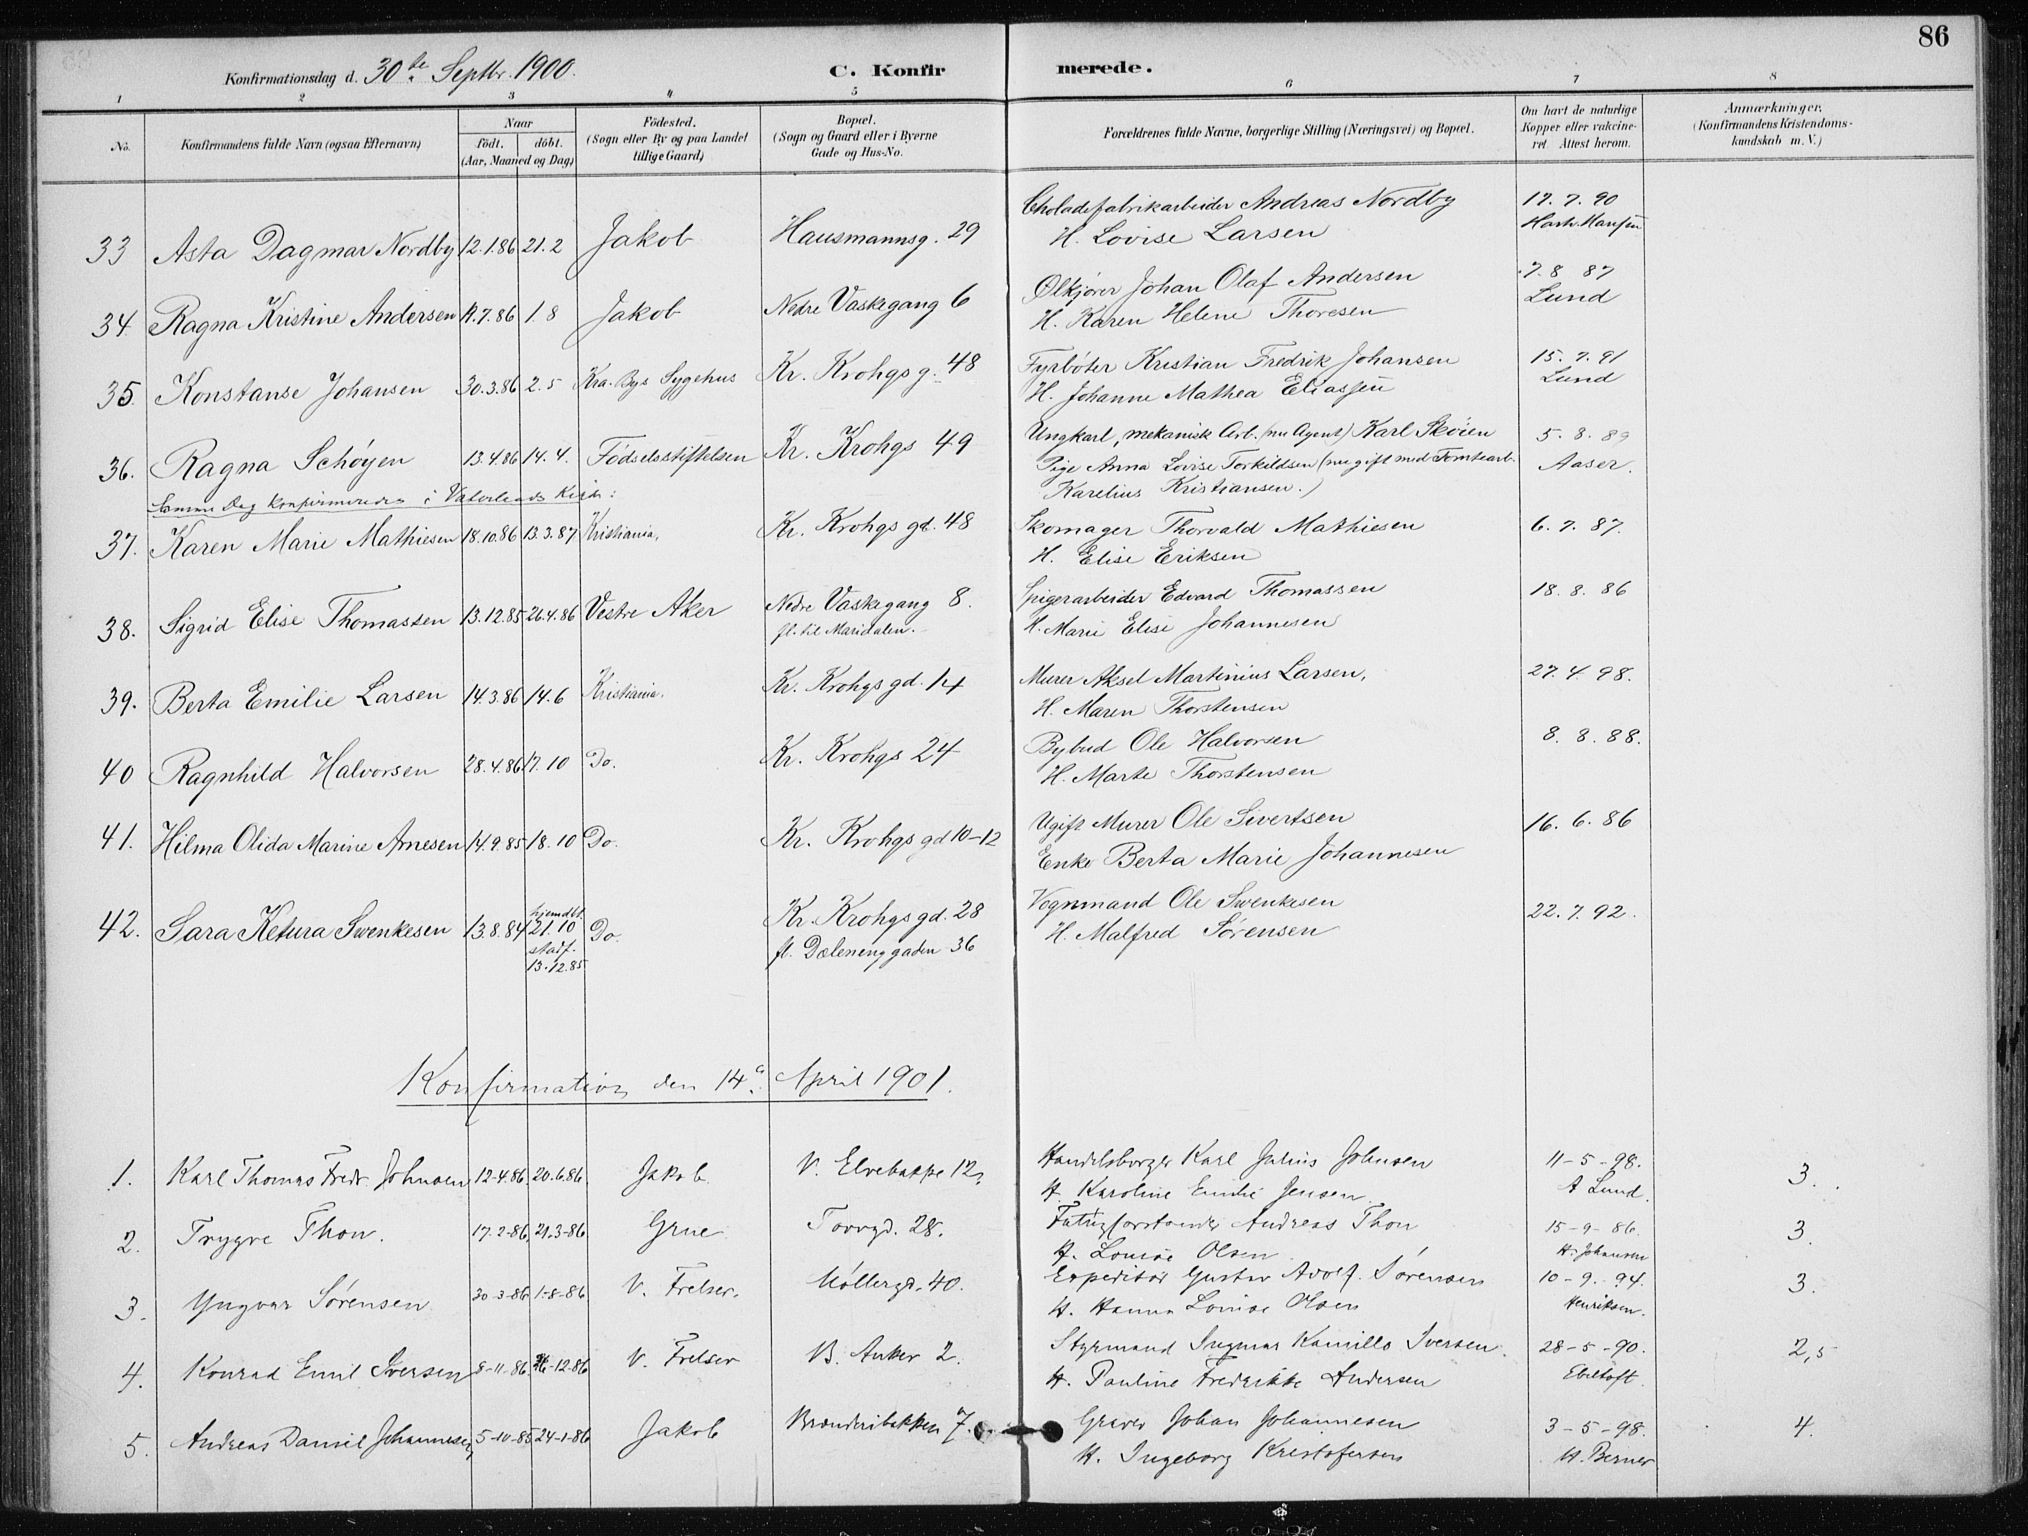 86
Konfirmationsdag d. 30te Septbr. 1900.
C. Konfirmerede.
1 2 3 4 5 6 7 8
No.
Konfirmandens fulde Navn (ogsaa Efternavn)
Naar
födt. döbt.
(Aar, Maaned og Dag)
Födested.
(Sogn eller By og paa Landet
tillige Gaard)
Bopæl.
(Sogn og Gaard eller i Byerne
Gade og Hus-No.
Forældrenes fulde Navne, borgerlige Stilling (Næringsvei) og Bopæl.
Om havt de naturlige
Kopper eller vakcine-
ret. Attest herom.
Anmærkninger.
(Konfirmandens Kristendoms-
kundskab m. V.)
33 Asta Dagmar Nordby 12.1.86 21.2 Jakob Hausmannsg. 29 Choladefabrikarbeider Andreas Nordby 17.7.90
H. Lovise Larsen
34. Ragna Kristine Andersen 11.7.86 1.8 Jakob Nedre Vaskegang 6 Ølkjører Johan Olaf Andersen 7.8 87
H. Karen Helene Thoresen Lund
35. Konstanse Johansen 30.3.86 2.5 Kra. Bys Sygehus Kr. Krohgs g. 48 Fyrbøter Kristian Fredrik Johansen 15.7.91
H. Johanne Mathea Eliassen Lund
36. Ragna Schøyen 13.4.86 14.4. Fødselsstiftelsen Kr. Krohgs 49 Ungkarl, mekanisk Arb. (nu Agent) Karl Skøien 5.8.89
Pige Anna Lovise Torkildsen (nu gift med Tomtearb. Aaser.
Karelius Kristiansen.)
Samme Dag konfirmeredes i Vaterlands Kirke:
37. Karen Marie Mathiesen 18.10.86 13.3.87 Kristiania, Kr. Krohgs gd. 48 Skomager Thorvald Mathiesen 6.7.87.
H. Elise Eriksen
38. Sigrid Elise Thomassen 13.12.85 26.4.86 Vestre Aker Nedre Vaskegang 8. Spigerarbeider Edvard Thomassen 18.8.86
fl. til Maridalen. H. Marie Elise Johannesen
39. Berta Emilie Larsen 14.3.86 14.6 Kristiania. Kr. Krohgs gd. 14 Murer Aksel Martinius Larsen, 27.4.98.
H. Maren Thorstensen
40 Ragnhild Halvorsen 28.4.86 17.10 Do. Kr. Krohgs 24 Bybud Ole Halvorsen 8.8.88.
H. Marte Thorstensen
41. Hilma Olida Marine Arnesen 14.9.85 18.10 Do. Kr. Krohgs gd 10-12 Ugift Murer Ole Sivertsen 16.6.86
Enke Berta Marie Johannesen
42. Sara Ketura Swenkesen 13.8.84 hjemdbt. 21.10 Do. Kr. Krohgs gd. 28 Vognmand Ole Swenkesen 22.7.92.
stadf. 13.12.85 fl. Dæleneng gaden 36 H. Malfred Sørensen
Konfirmation den 14de April 1901.
1. Karl Thomas Fredr. Johnsen 12-4.86 20.6.86 Jakob V. Elvebakke 12, Handelsborger Karl Julius Johnsen 11-5-98. 3.
H. Karoline Emilie Jensen A Lund.
2. Trygve Thon. 17.2-86. 21.3-86 Grue Torvgd. 28. Andreas Thon 15-9-86. 3.
H. Louise Olsen H. Johansen
3. Yngvar Sørensen 30-3-86 1-8-86 V. Frelser. Møllergd. 40. Expeditør Gustav Adolf. Sørensen 10-9.94. 3.
H. Hanna Louise Olsen Henriksen.
4. Konrad Emil Iversen 8-11-86 26-12-86 V. Frelser B. Anker 2. Styrmand Ingmar Kamillo Iversen. 28-5-90. 2,5
H. Pauline Fredrikke Andersen Ebeltoft.
5. Andreas Daniel Johannesen 5-10-85 24-1-86 Jakob Brænderibakken 7. Graver Johan Johannesen 3-5-98. 4.
H. Ingeborg Kristofersen H. Berner